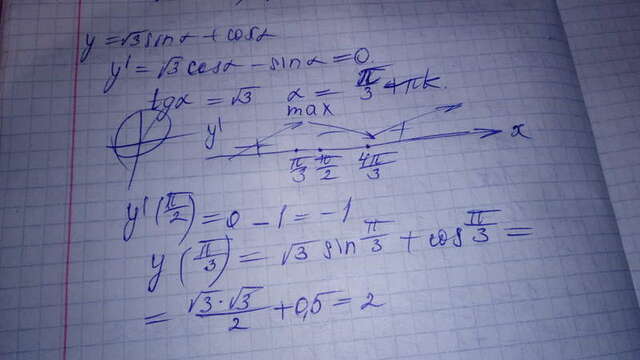 y = √3 sinα + cosα
y' = √3 cosα - sinα = 0
tgα = √3   α = π/3 + πk
max
y'   x
π/3   π/2   4π/3
y'(π/2) = 0 - 1 = -1
y(π/3) = √3 sin π/3 + cos π/3 =
= √3·√3/2 + 0,5 = 2